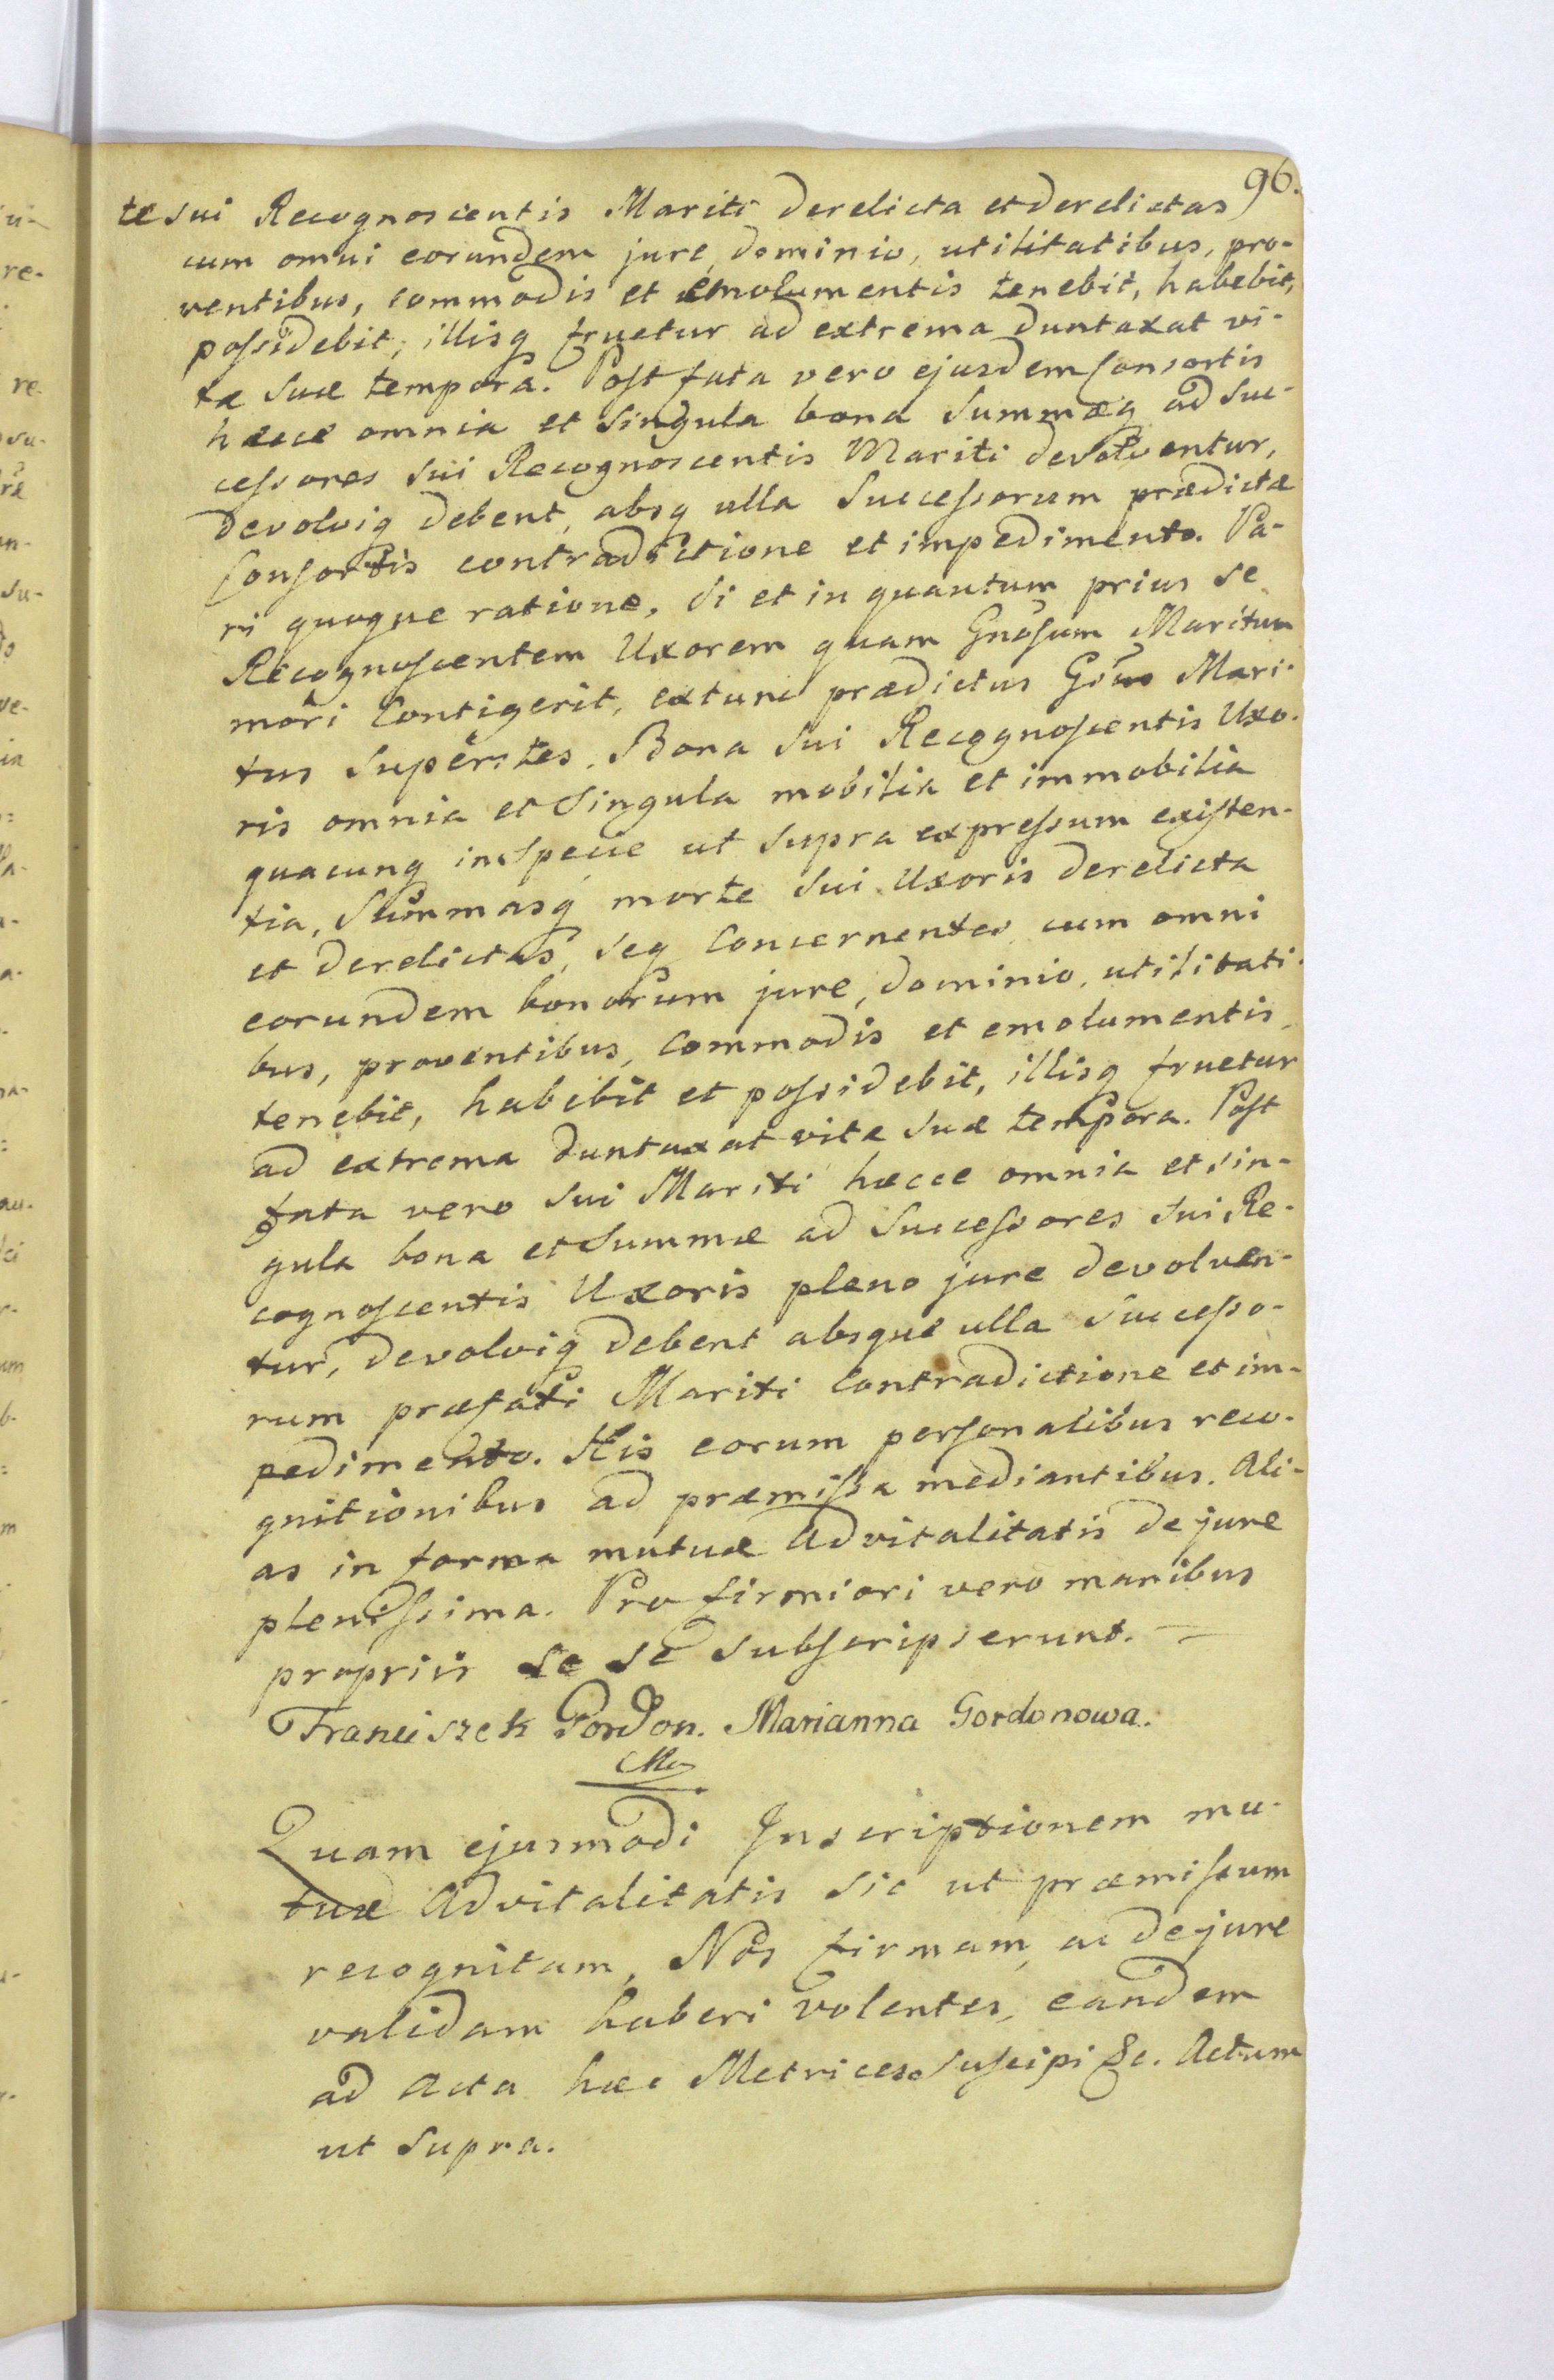 96.
te sui Recognoscentis Mariti derelicta et derelictas
cum omni eorundem jure, dominio, utilitatibus, pro-
ventibus, commodis et emolumentis tenebit, habebit,
possidebit, illisq fruetur ad extrema duntaxat vi-
tæ suæ tempora. Post fata vero ejusdem Consortis
hæcce omnia et singula bona summæq ad suc-
cessores sui Recognoscentis Mariti devolventur,
devolviq debent, absq ulla Successorum prædictæ
Consortis contradictione et impedimento. Pa-
ri quoque ratione, si et in quantum prius se
Recognoscentem Uxorem quam Gnosum Maritum
mori contigerit, extunc prædictus Gsus Mari-
tus superstes, Bona sui Recognoscentis Uxo-
ris omnia et singula mobilia et immobilia
quacunq in specie ut supra expressum existen-
tia, Summasq morte sui Uxoris derelicta
et derelictas, seq concernentes cum omni
eorundem bonorum jure, dominio, utilitati-
bus, proventibus, commodis et emolumentis,
tenebit, habebit et possidebit, illisq fruetur
ad extrema duntaxat vitæ suæ tempora. Post
fata vero sui Mariti hæcce omnia et sin-
gula bona et summæ ad Successores sui Re-
cognoscentis Uxoris pleno jure devolven-
tur, devolviq debent absque ulla successo-
rum præfati Mariti contradictione et im-
pedimento. His eorum personalibus reco-
gnitionibus ad præmissa mediantibus. Ali-
as in forma mutuæ Advitalitatis de jure
plenissima. Pro firmiori vero manibus
propriis se se subscripserunt.
Franciszek Gordon. Marianna Gordonowa.
Quam ejusmodi Inscriptionem mu-
tuæ Advitalitatis sic ut præmissum
recognitam, Nos firmam, ac de jure
validam haberi volentes, eandem
ad Acta hæc Metrices. suscipi &c. Actum
ut supra.